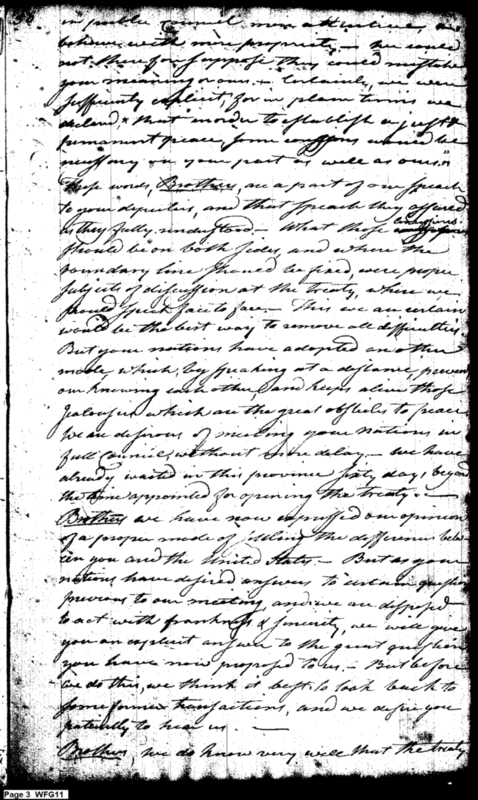 in public Council more attentive, and
believe with more propriety — We could
not therefore suppose they could mistake
your meaning or ours. — Certainly, we were
sufficiently explicit, for in plain terms we
declared, "that in order to establish a just &
permanent peace, some concessions would be
necessary on your part as well as ours."
These words, Brothers, are a part of our speech
to your deputies, and that speech they assured
us they fully understood — What those concessions
should be on both sides, and where the
boundary line should be fixed, were proper
subjects of discussion at the treaty, where we
should speak face to face — This we are certain
would be the best way to remove all difficulties
But your nations have adopted another
mode, which, by speaking at a distance, prevents
our knowing each other, and keeps alive those
jealousies which are the great obstacles to peace.
We are desirous of meeting your nations in
full Council, without more delay — We have
already waited in this province sixty days beyond
the time appointed for opening the treaty. —
Brothers we have now expressed our opinion
of a proper mode of settling the difference betw
een you and the United States. — But as your
nations have desired answers to certain questions
previous to our meeting and we are disposed
to act with frankness & sincerity, we will give
you an explicit answer to the great question
you have now proposed to us. — But before
we do this, we think it best to look back to
some former transactions, and we desire you
patiently to hear us. —
Brothers, we do know very well that the treaty
Page 3 WFG11